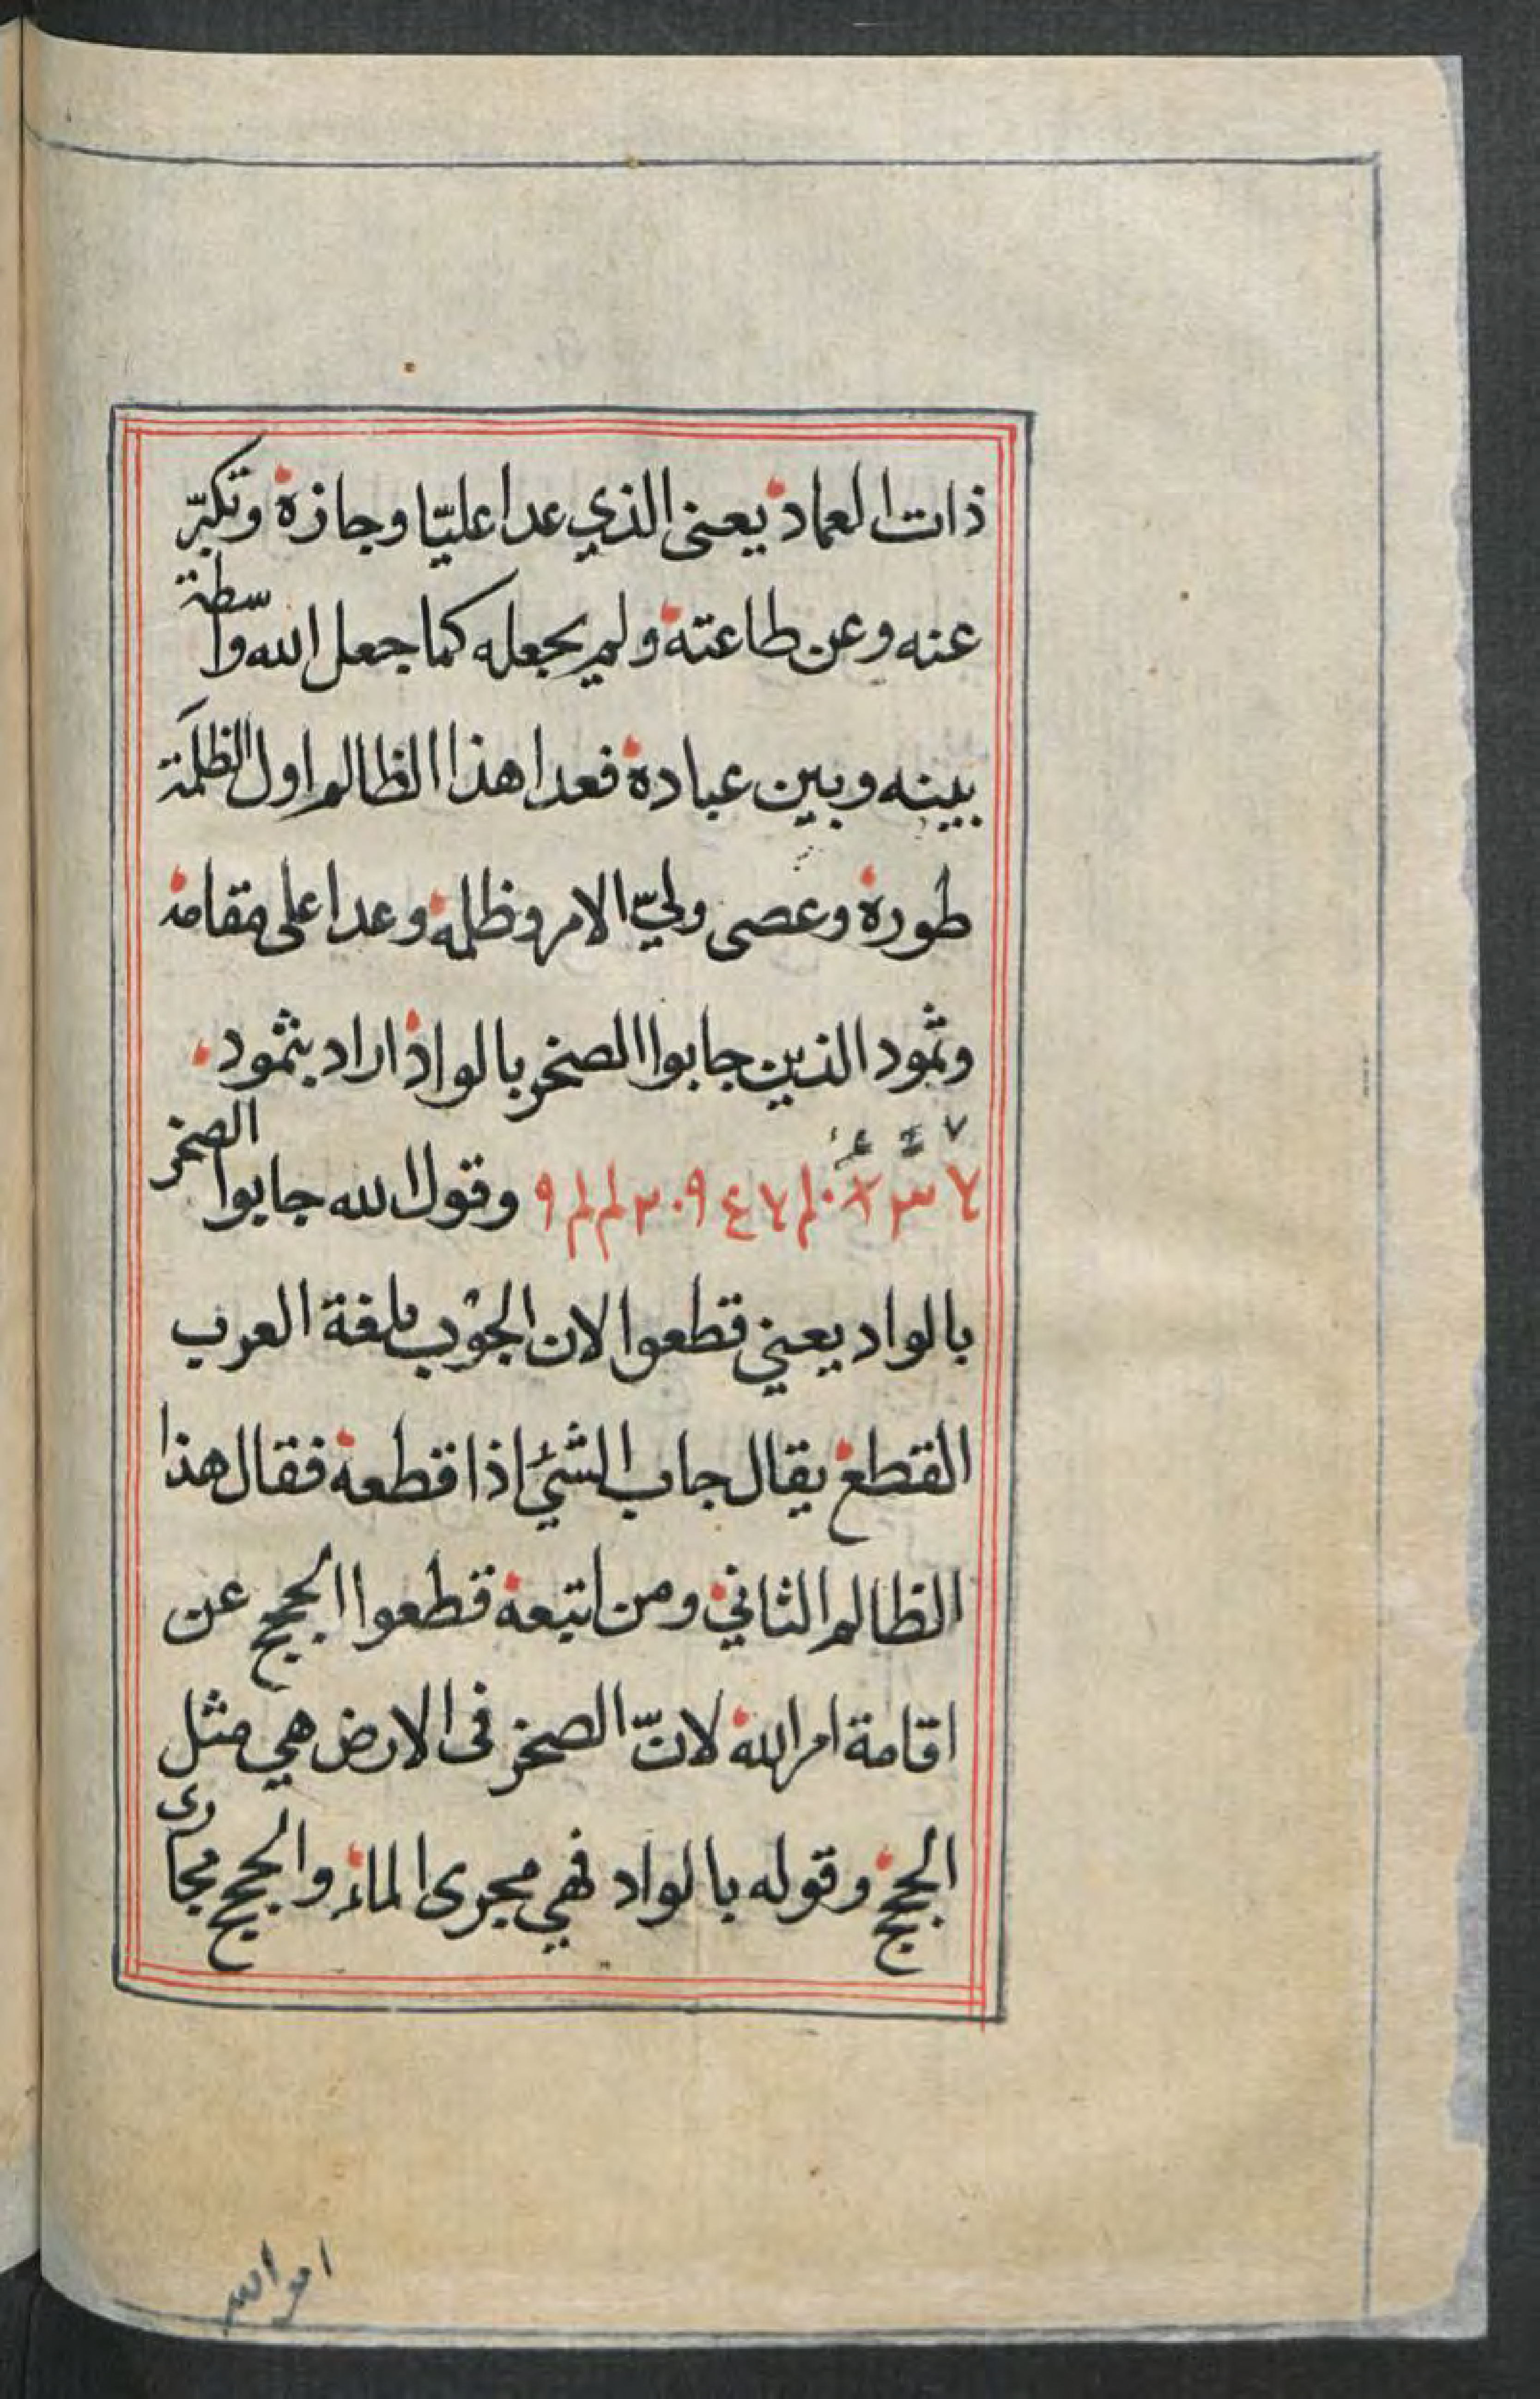 ذات العماد يعني الذي عدا عليّا وجازه وتكبّر
عنه وعن طاعته ولم يجعله كما جعل الله واسطة
بينه وبين عباده فعدا هذا الظالم اول الظلمَة
طوره وعصى وليّ الامر وظلمه وعدا على مقامه
وثمود الذين جابوا الصخر بالواد اراد بثمود
وقول الله جابوا الصخر
بالواد يعني قطعوا لان الجوْب بلغة العرب
القطع يقال جاب الشيئ اذا قطعه فقال هذا
الظالم الثاني ومن اتبعه قطعوا الحجج عن
اقامة امر الله لانّ الصخر في الارض هي مثل
الحجج وقوله بالواد فهي مجرى الماء والحجج مجارى
امر الله